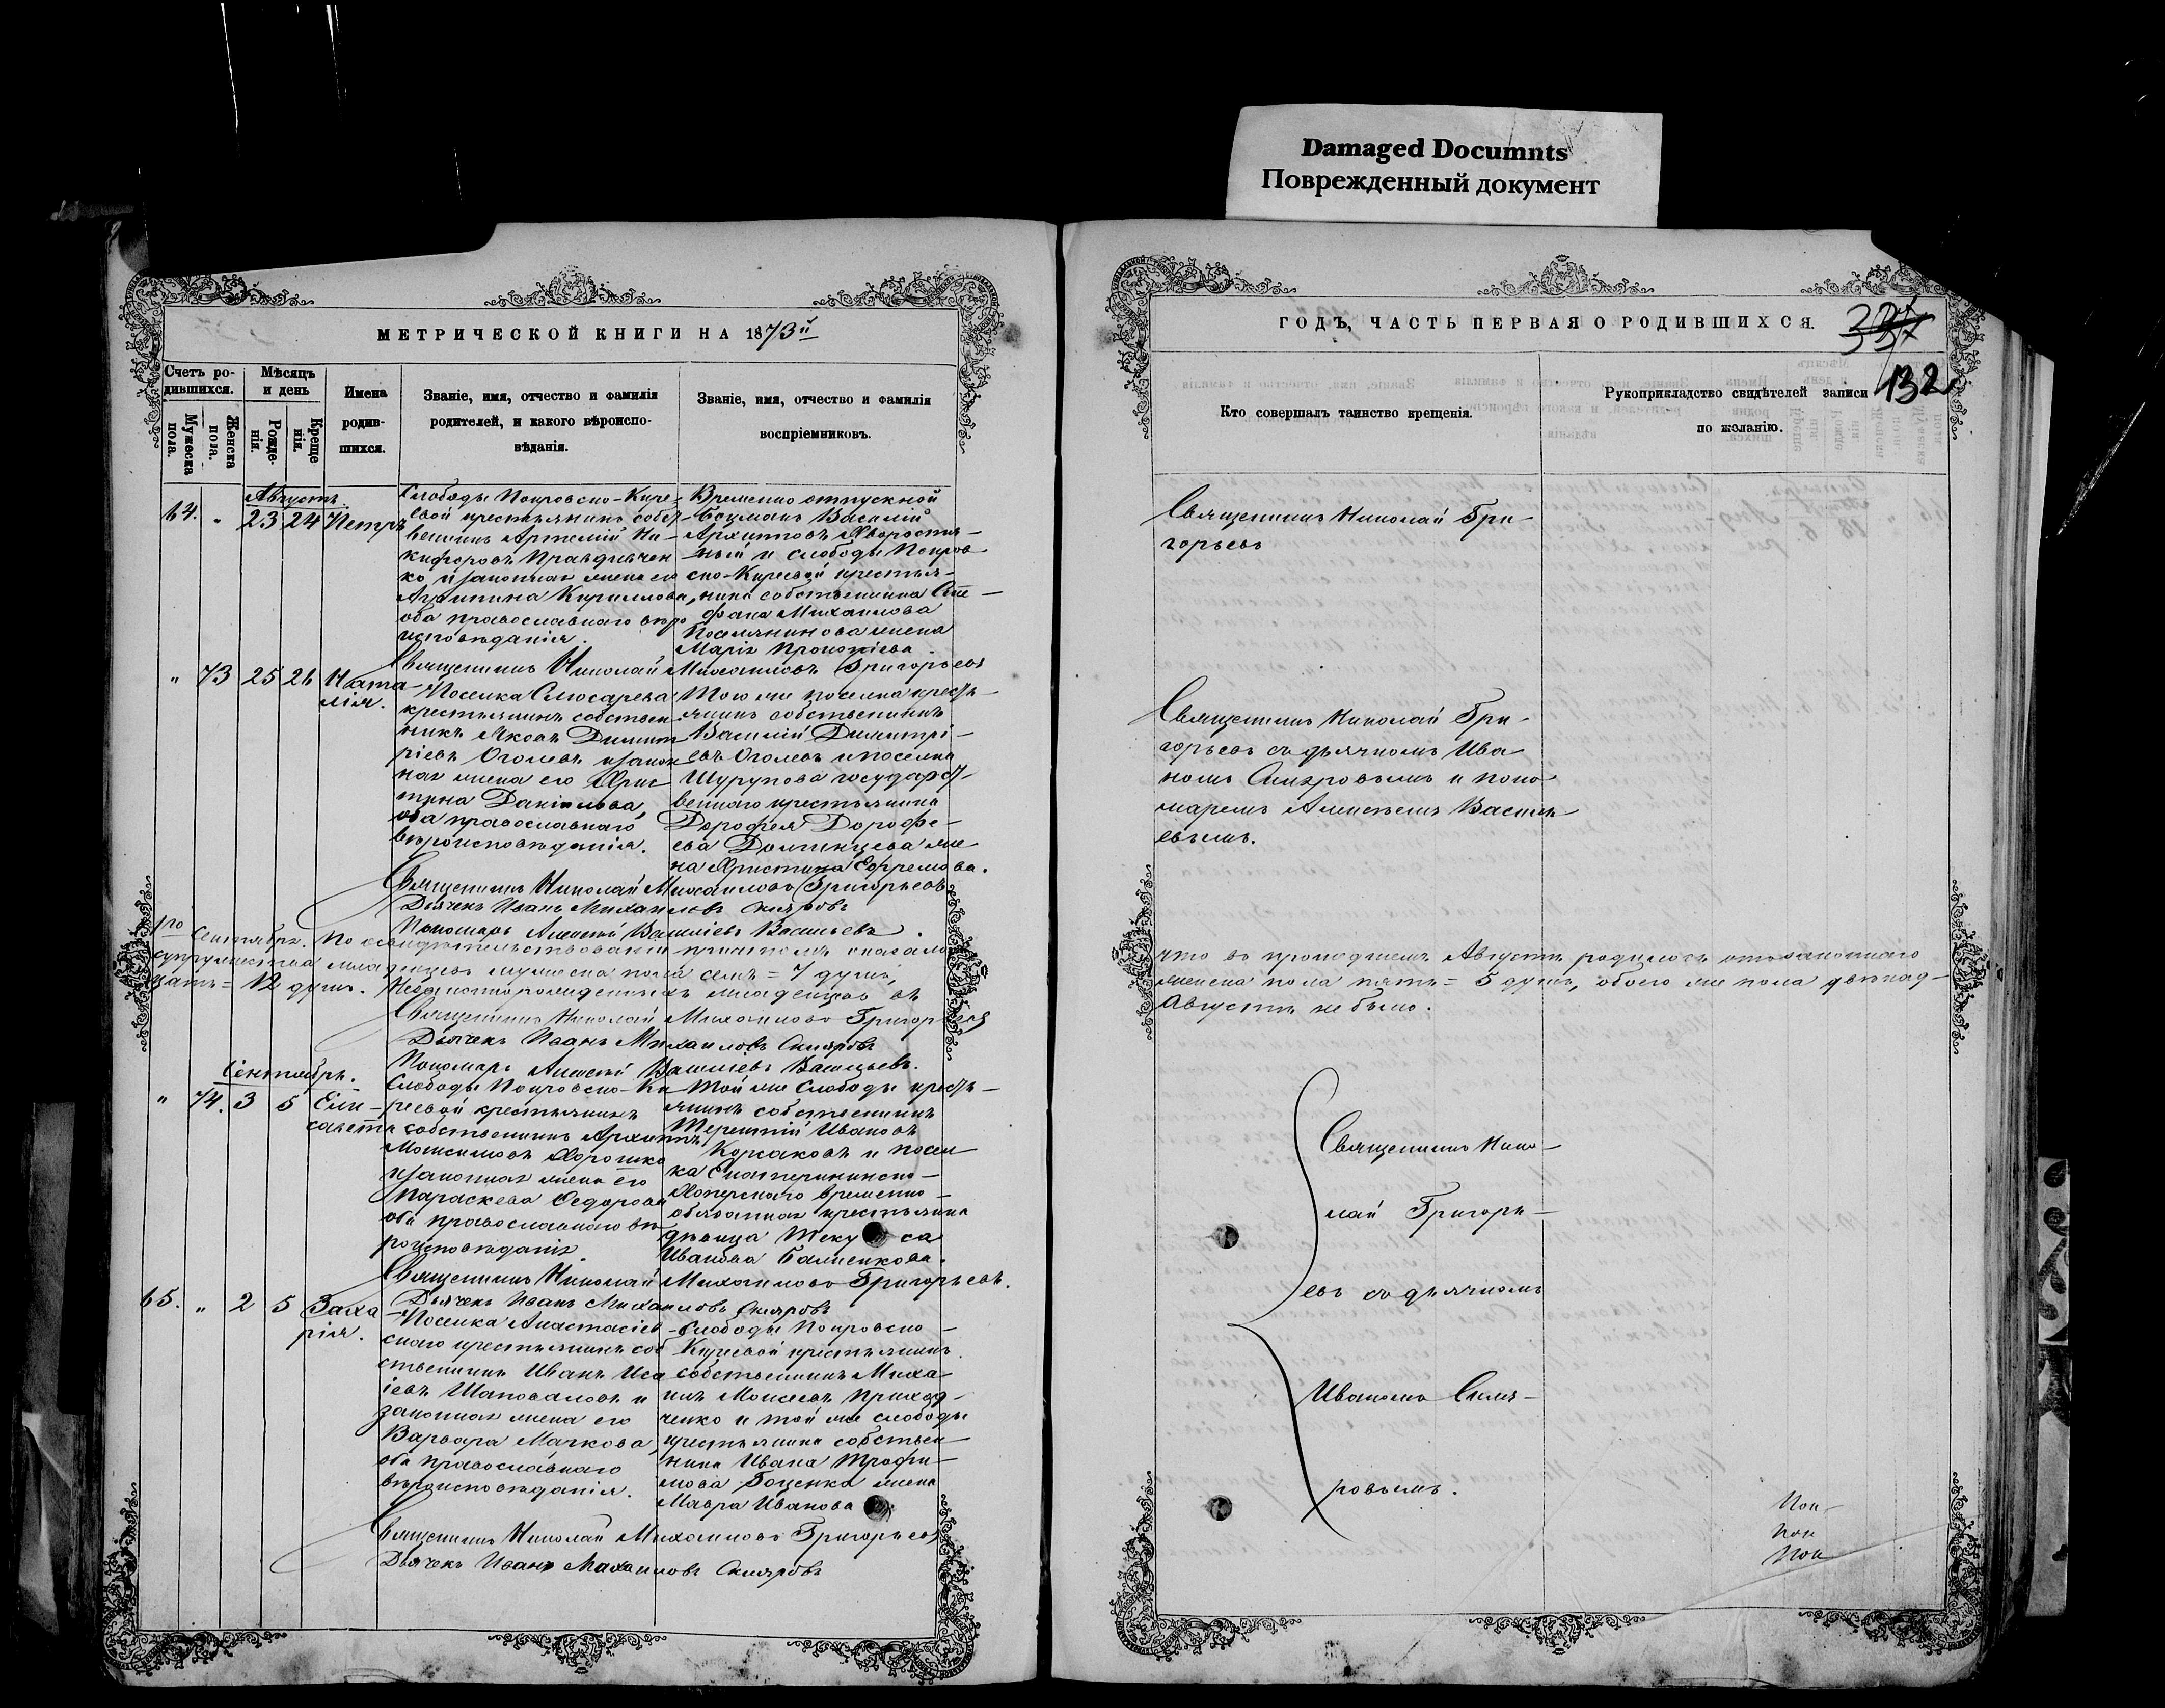 Damaged Documnts
Поврежденный документ
МЕТРИЧЕСКОЙ КНИГИ НА 1873й
Счетъ ро-
дившихся.
Мѣсяцъ
и день
Мужеска
пола.
Женска
пола.
Рожде-
нія.
Креще
нія.
Имена
родив-
шихся.
Званіе, имя, отчество и фамилія
родителей, и какого вѣроиспо-
вѣданія.
Званіе, имя, отчество и фамилія
воспріемниковъ.
Августъ
64. " 23 24 Петръ
Слободы Покровско-Кире-
евой крестьянинъ собст-
венникъ Артемій Ни-
кифоровъ Правдивчен
ко и законная жена его
Агрипина Кириллова,
оба православнаго вѣро
исповѣданія.
Временно отпускной
Боцманъ Василій
Архиповъ Хворостя-
ный и слободы Покров
ско-Киреевой крестья-
нина собственника Сте-
фана Михаилова
Поселянинова жена
Марія Прокопіева
Священникъ Николай Михаиловъ Григорьевъ
" 73 25 26 Ната-
лія.
Поселка Слюсарева
крестьянинъ собствен
никъ Яковъ Димит
ріевъ Оголевъ и закон
ная жена его Хрис
тина Даніилова,
оба православнаго
вѣроисповѣданія.
Того же поселка кресть-
янинъ собственникъ
Василій Димитрі-
евъ Оголевъ и поселка
Шурупова государст-
веннаго крестьянина
Дорофея Дорофе-
ева Долинцева же
на Христина Ефремова.
Священникъ Николай Михаиловъ Григорьевъ
Дьячекъ Иванъ Михаиловъ Скляровъ
Пономарь Алексѣй Василіевъ Васильевъ.
1го Сентября. По освидѣтельствованіи причтомъ оказалось
супружества младенцевъ мужеска пола семь = 7 душъ,
цать = 12 душъ. Незаконнорожденныхъ младенцевъ въ
Священникъ Николай Михаиловъ Григорьевъ
Дьячекъ Иванъ Михаиловъ Скляровъ
Пономарь Алексѣй Василіевъ Васильевъ.
Сентябрь.
" 74. 3 5 Ели-
савета
Слободы Покровско-Ки
реевой крестьянинъ
собственникъ Архиппъ
Моисеевъ Хорошко
и законная жена его
Параскева Ѳедорова
оба православнаго вѣ-
роисповѣданія.
Той же Слободы кресть-
янинъ собственникъ
Терентій Ивановъ
Корсаковъ и посел
ка Екатерининско-
Хоперскаго временно-
обязаннаго крестьянина
дѣвица Теку са
Иванова Балженкова.
Священникъ Николай Михаиловъ Григорьевъ.
Дьячекъ Иванъ Михаиловъ Скляровъ
65. " 2 5 Заха
рія.
Поселка Анастасіев-
скаго крестьянинъ соб
ственникъ Иванъ Иса
іевъ Шаповаловъ и
законная жена его
Варвара Маркова,
оба православнаго
вѣроисповѣданія.
Слободы Покровско-
Киреевой крестьянинъ
собственникъ Миха-
илъ Моисеевъ Приход-
ченко и той же слободы
крестьянина собствен-
ника Ивана Трофи-
мова Гоценка жена
Мавра Иванова
Священникъ Николай Михаиловъ Григорьевъ
Дьячекъ Иванъ Михаиловъ Скляровъ
ГОДЪ, ЧАСТЬ ПЕРВАЯ О РОДИВШИХСЯ.
132
Кто совершалъ таинство крещенія.
Рукоприкладство свидѣтелей записи
по желанію.
Священникъ Николай Гри-
горьевъ
Священникъ Николай Гри-
горьевъ съ дьячкомъ Ива
номъ Скляровымъ и поно
маремъ Алексѣемъ Василь
евымъ.
что въ прошедшемъ Августѣ родилось отъ законнаго
женска пола пять = 5 душъ, обоего же пола двѣнад-
Августѣ не было.
Священникъ Нико-
лай Григорь-
евъ съ дьячкомъ
Иваномъ Скля-
ровымъ.
Пон
Пон
Пон